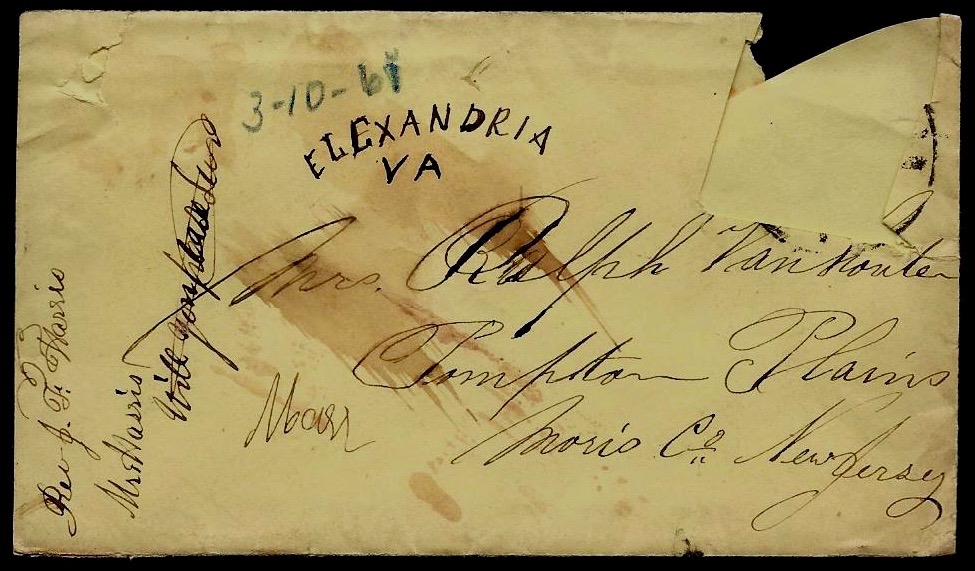 3-10-61
ELEXANDRIA
VA
Mrs. Ralph Van Houten
Pompton Plains
Moris Co. New Jersey
Rev J. F. Harris
Mrs Harris
Will